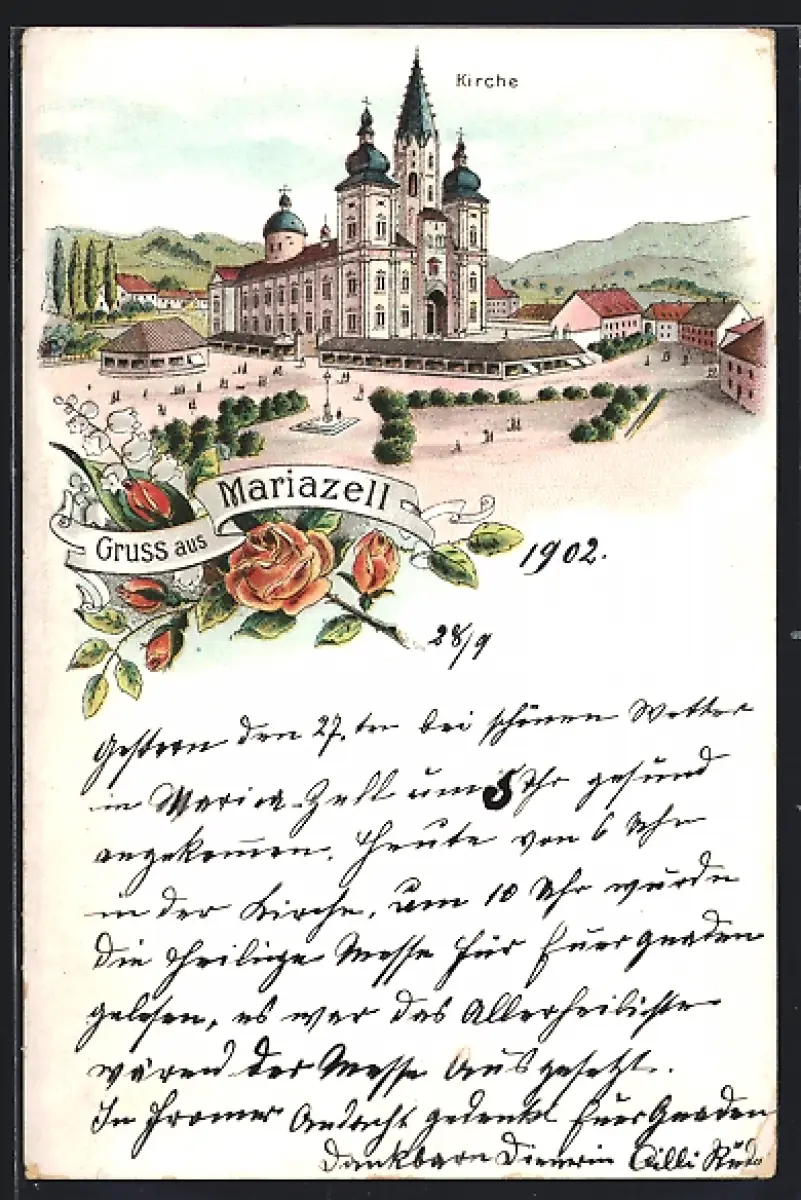 Kirche
Gruss aus Mariazell
1902.
28/9
Gestern den 27.ten bei schönen Wetter
in Maria-Zell um 5 Uhr gesund
angekommen. Heute von 6 Uhr
in der Kirche, um 10 Uhr wurde
die Heilige Messe für Euer Gnaden
gelesen, es war das Allerheiligste
wärend der Messe Ausgesetzt.
In fromer Andacht gedenkt Euer Gnaden
Dankbare Dienerin Cilli